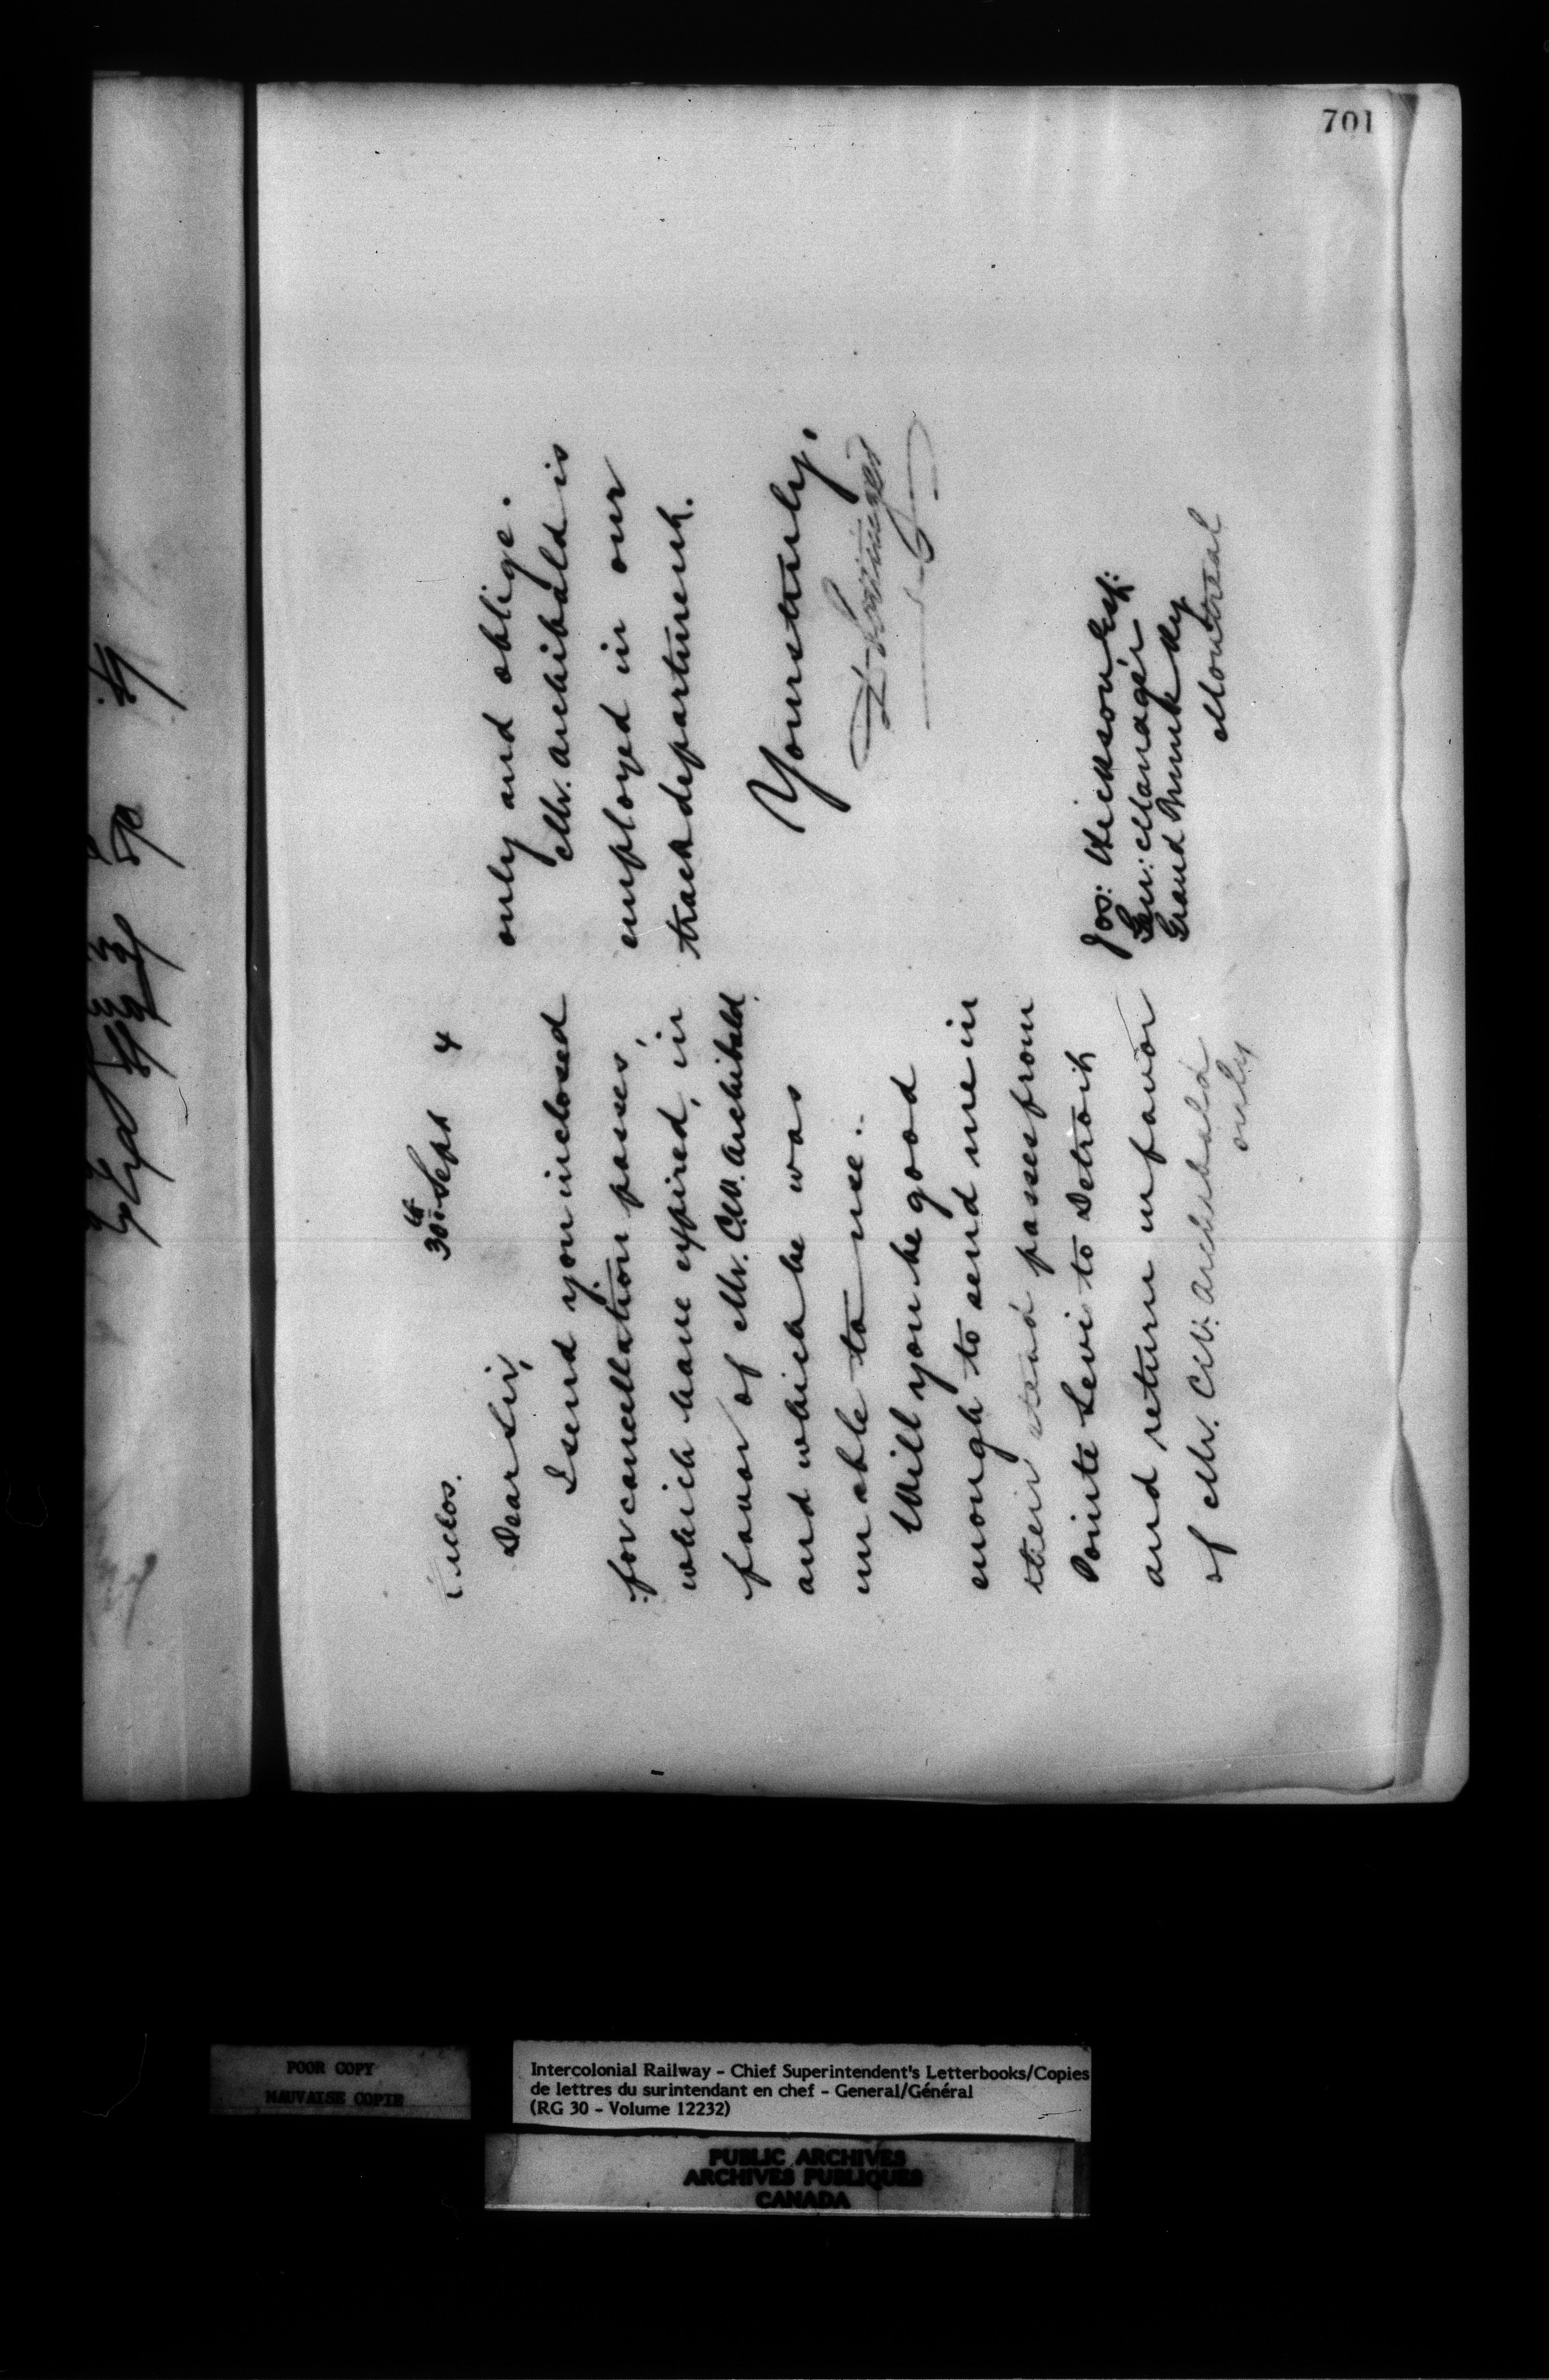 701
Enclos.
30th Sept 4
Dear Sir,
I send you inclosed
for cancellation passes,
which have expired, in
favor of Mr. C.W. Archibald
and which he was
unable to use.
Will you be good
enough to send me in
their stead passes from
Pointe Levi to Detroit
and return in favor
of Mr. C.W. Archibald
only
only and oblige.
Mr. Archibald is
employed in our
track department.
Yours truly,
Jos: Hickson Esq:
Gen: Manager
Grand Trunk Ry
Montreal
POOR COPY
MAUVAISE COPIE
Intercolonial Railway - Chief Superintendent's Letterbooks/Copies
de lettres du surintendant en chef - General/Général
(RG 30 - Volume 12232)
PUBLIC ARCHIVES
ARCHIVES PUBLIQUES
CANADA